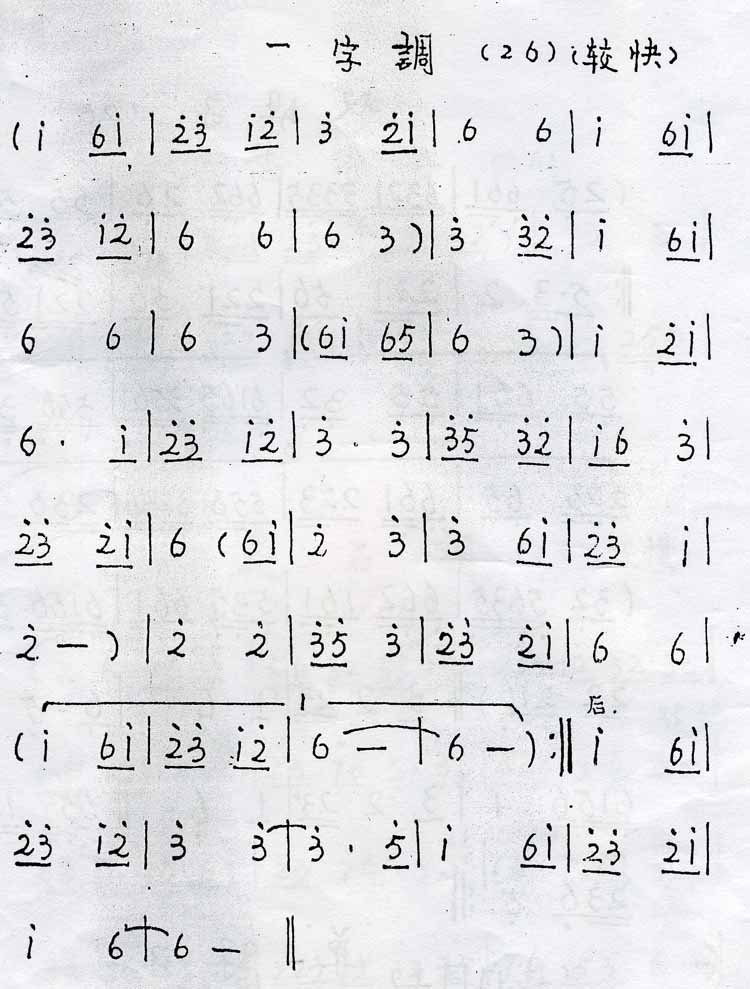 一字調 (26)(较快)
(i̇ 6i̇ | 2̇3̇ i̇2̇ | 3̇ 2̇i̇ | 6 6 | i̇ 6i̇ |
2̇3̇ i̇2̇ | 6 6 | 6 3 ) | 3̇ 3̇2̇ | i̇ 6i̇ |
6 6 | 6 3 | (6i̇ 65 | 6 3 ) | i̇ 2̇i̇ |
6 · i̇ | 2̇3̇ i̇2̇ | 3̇ · 3̇ | 3̇5̇ 3̇2̇ | i̇6 3̇ |
2̇3̇ 2̇i̇ | 6 (6i̇ | 2̇ 3̇ | 3̇ 6i̇ | 2̇3̇ i̇ |
2̇ — ) | 2̇ 2̇ | 3̇5̇ 3̇ | 2̇3̇ 2̇i̇ | 6 6 |
1 后.
(i̇ 6i̇ | 2̇3̇ i̇2̇ | 6 — | 6 — ) :‖ i̇ 6i̇ |
2̇3̇ i̇2̇ | 3̇ 3̇ | 3̇ · 5̇ | i̇ 6i̇ | 2̇3̇ 2̇i̇ |
i̇ 6 | 6 — ‖